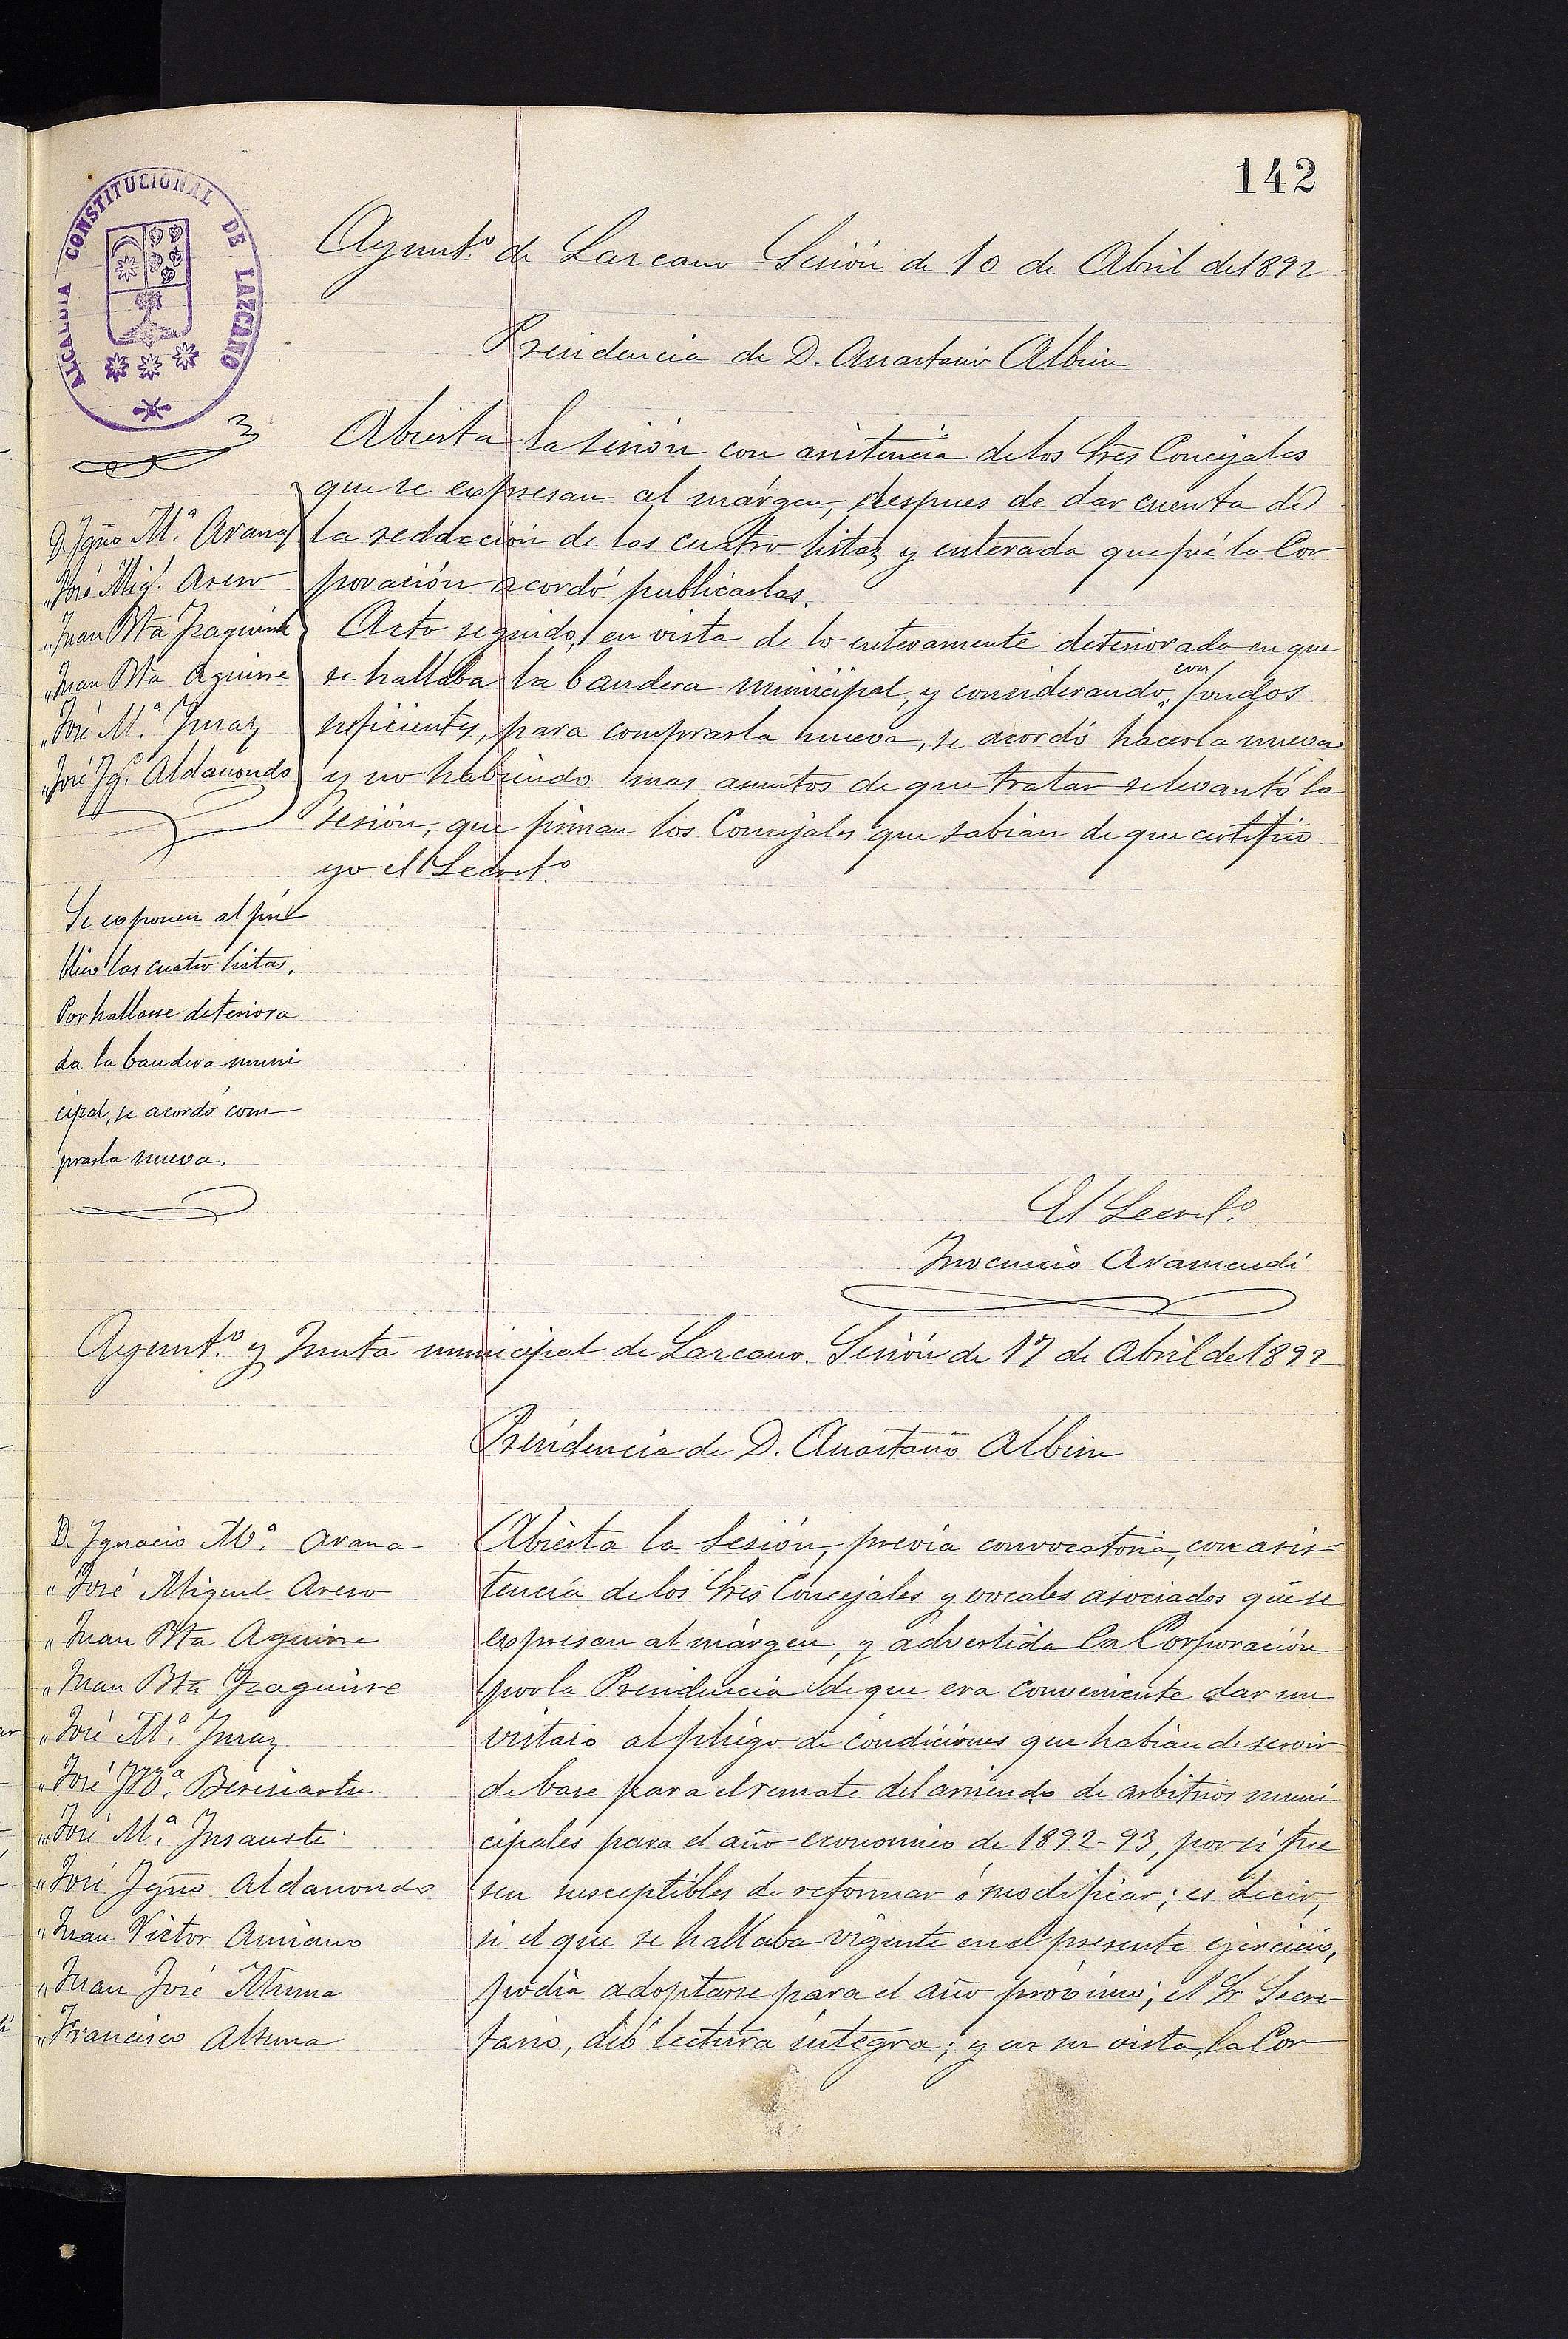 142
ALCALDIA CONSTITUCIONAL DE LAZCANO
Ayunt.º de Lazcano Sesión de 10 de Abril de 1892
Presidencia de D. Anastasio Albisu
D. Ygñº M.ª Arana
„ José Mig.l
„ Juan Bta Yzaguirre
„ Juan Bta Aguirre
„ José M.ª Ynsaz
„ José Yg.º Aldanondo
Abierta la sesión con asistencia de los Sres Concejales
que se expresan al márgen, despues de dar cuenta de
la redación de las cuatro listas, y enterada que fué la Cor
poración acordó publicarlas.
Acto seguido, en vista de lo enteramente deteriorada en que
se hallaba la bandera municipal, y considerando con fondos
suficientes, para comprarla nueva, se acordó hacerla nueva
y no habiendo mas asuntos de que tratar se levantó la
sesión, que firman los Concejales que sabian de que certifico
yo el Secret.º
Se exponen al púb
blico las cuatro listas.
Por hallarse deteriora
da la bandera muni
cipal, se acordó com
prarla nueva.
El Secret.º
Inocencio Aramendi
Ayunt.º y Junta municipal de Lazcano. Sesión de 17 de Abril de 1892
Presidencia de D. Anastasio Albisu
D. Ygnacio M.ª Arana
„ José Miguel
„ Juan Bta Aguirre
„ Juan Bta Yzaguirre
„ José M.ª
„ José M.ª Beresiartu
„ José M.ª Insausti
„ José Ygñº Aldanondo
„ Juan Victor Amiano
„ Juan José Altuna
„ Francisco Altuna
Abierta la Sesión, previa convocatoria, con asis
tencia de los Sres Concejales y vocales asociados que se
expresan al márgen, y advertida la Corporación
por la Presidencia de que era conveniente dar un
vistazo al pliego de condiciones que habian de servir
de base para el remate del arriendo de arbitrios muni
cipales para el año economico de 1892-93, por si fue
sen susceptibles de reformar ó modificar; es decir,
si el que se hallaba vigente en el presente ejercicio,
podia adoptarse para el año próximo; el Sr. Secre-
tario, dió lectura integra; y en su vista, la Cor